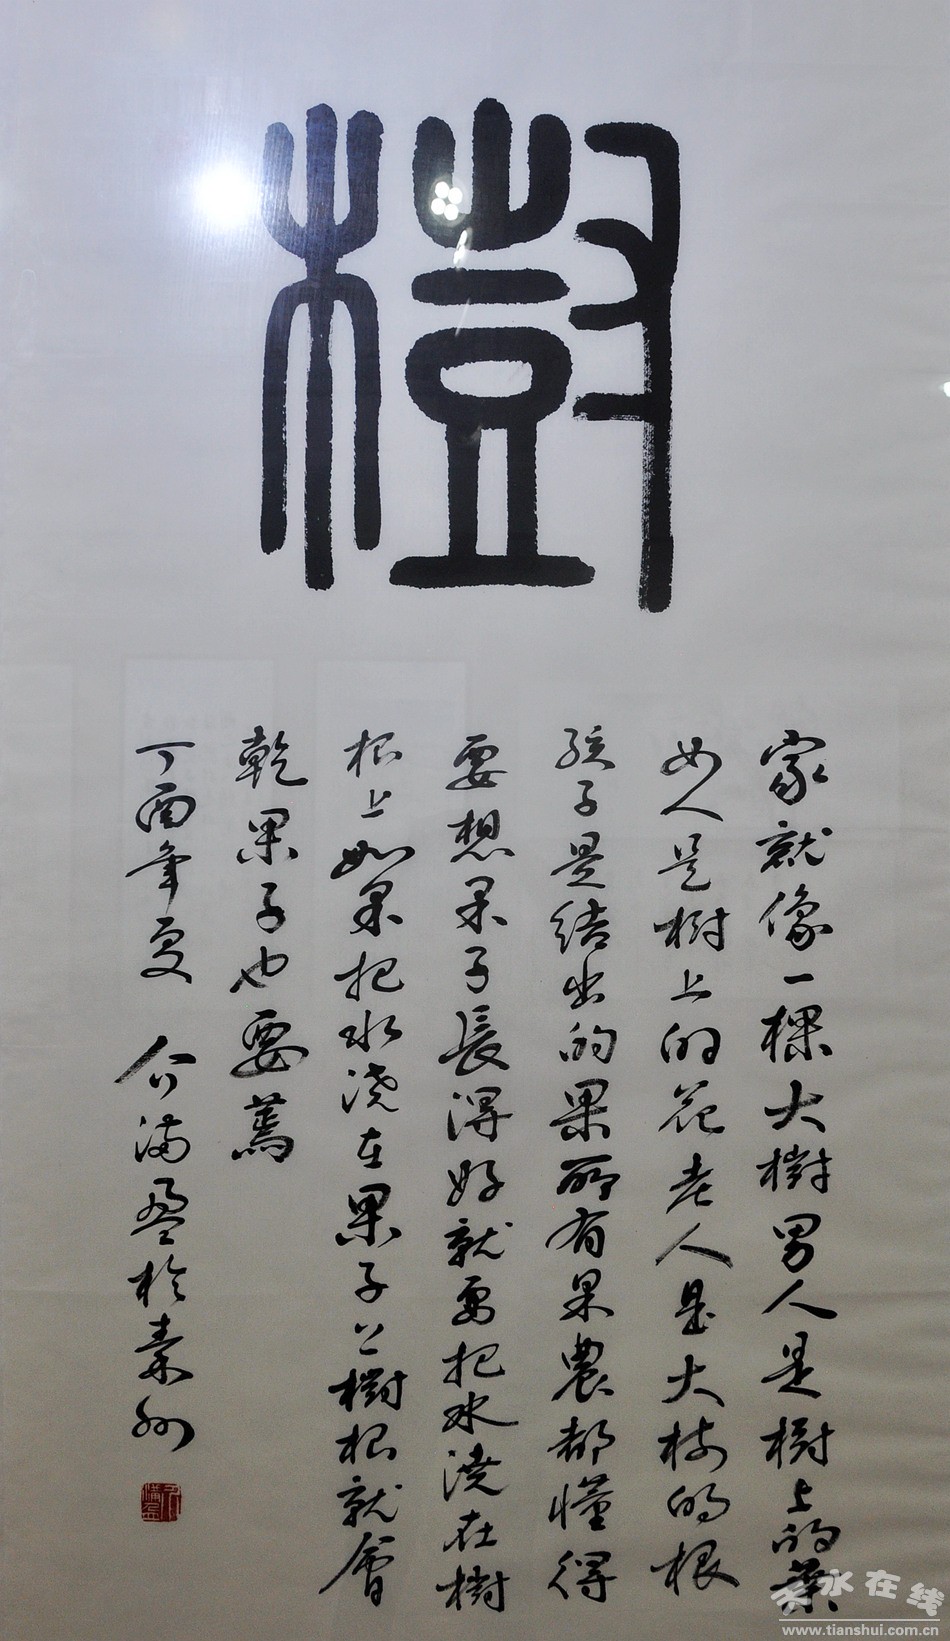 樹
家就像一棵大樹男人是樹上的葉
女人是樹上的花老人是大树的根
孩子是结出的果所有果農都懂得
要想果子長得好就要把水澆在樹
根上如果把水浇在果子上樹根就會
乾果子也要蔫
丁酉年夏 介满盈於秦州
天水在线
www.tianshui.com.cn